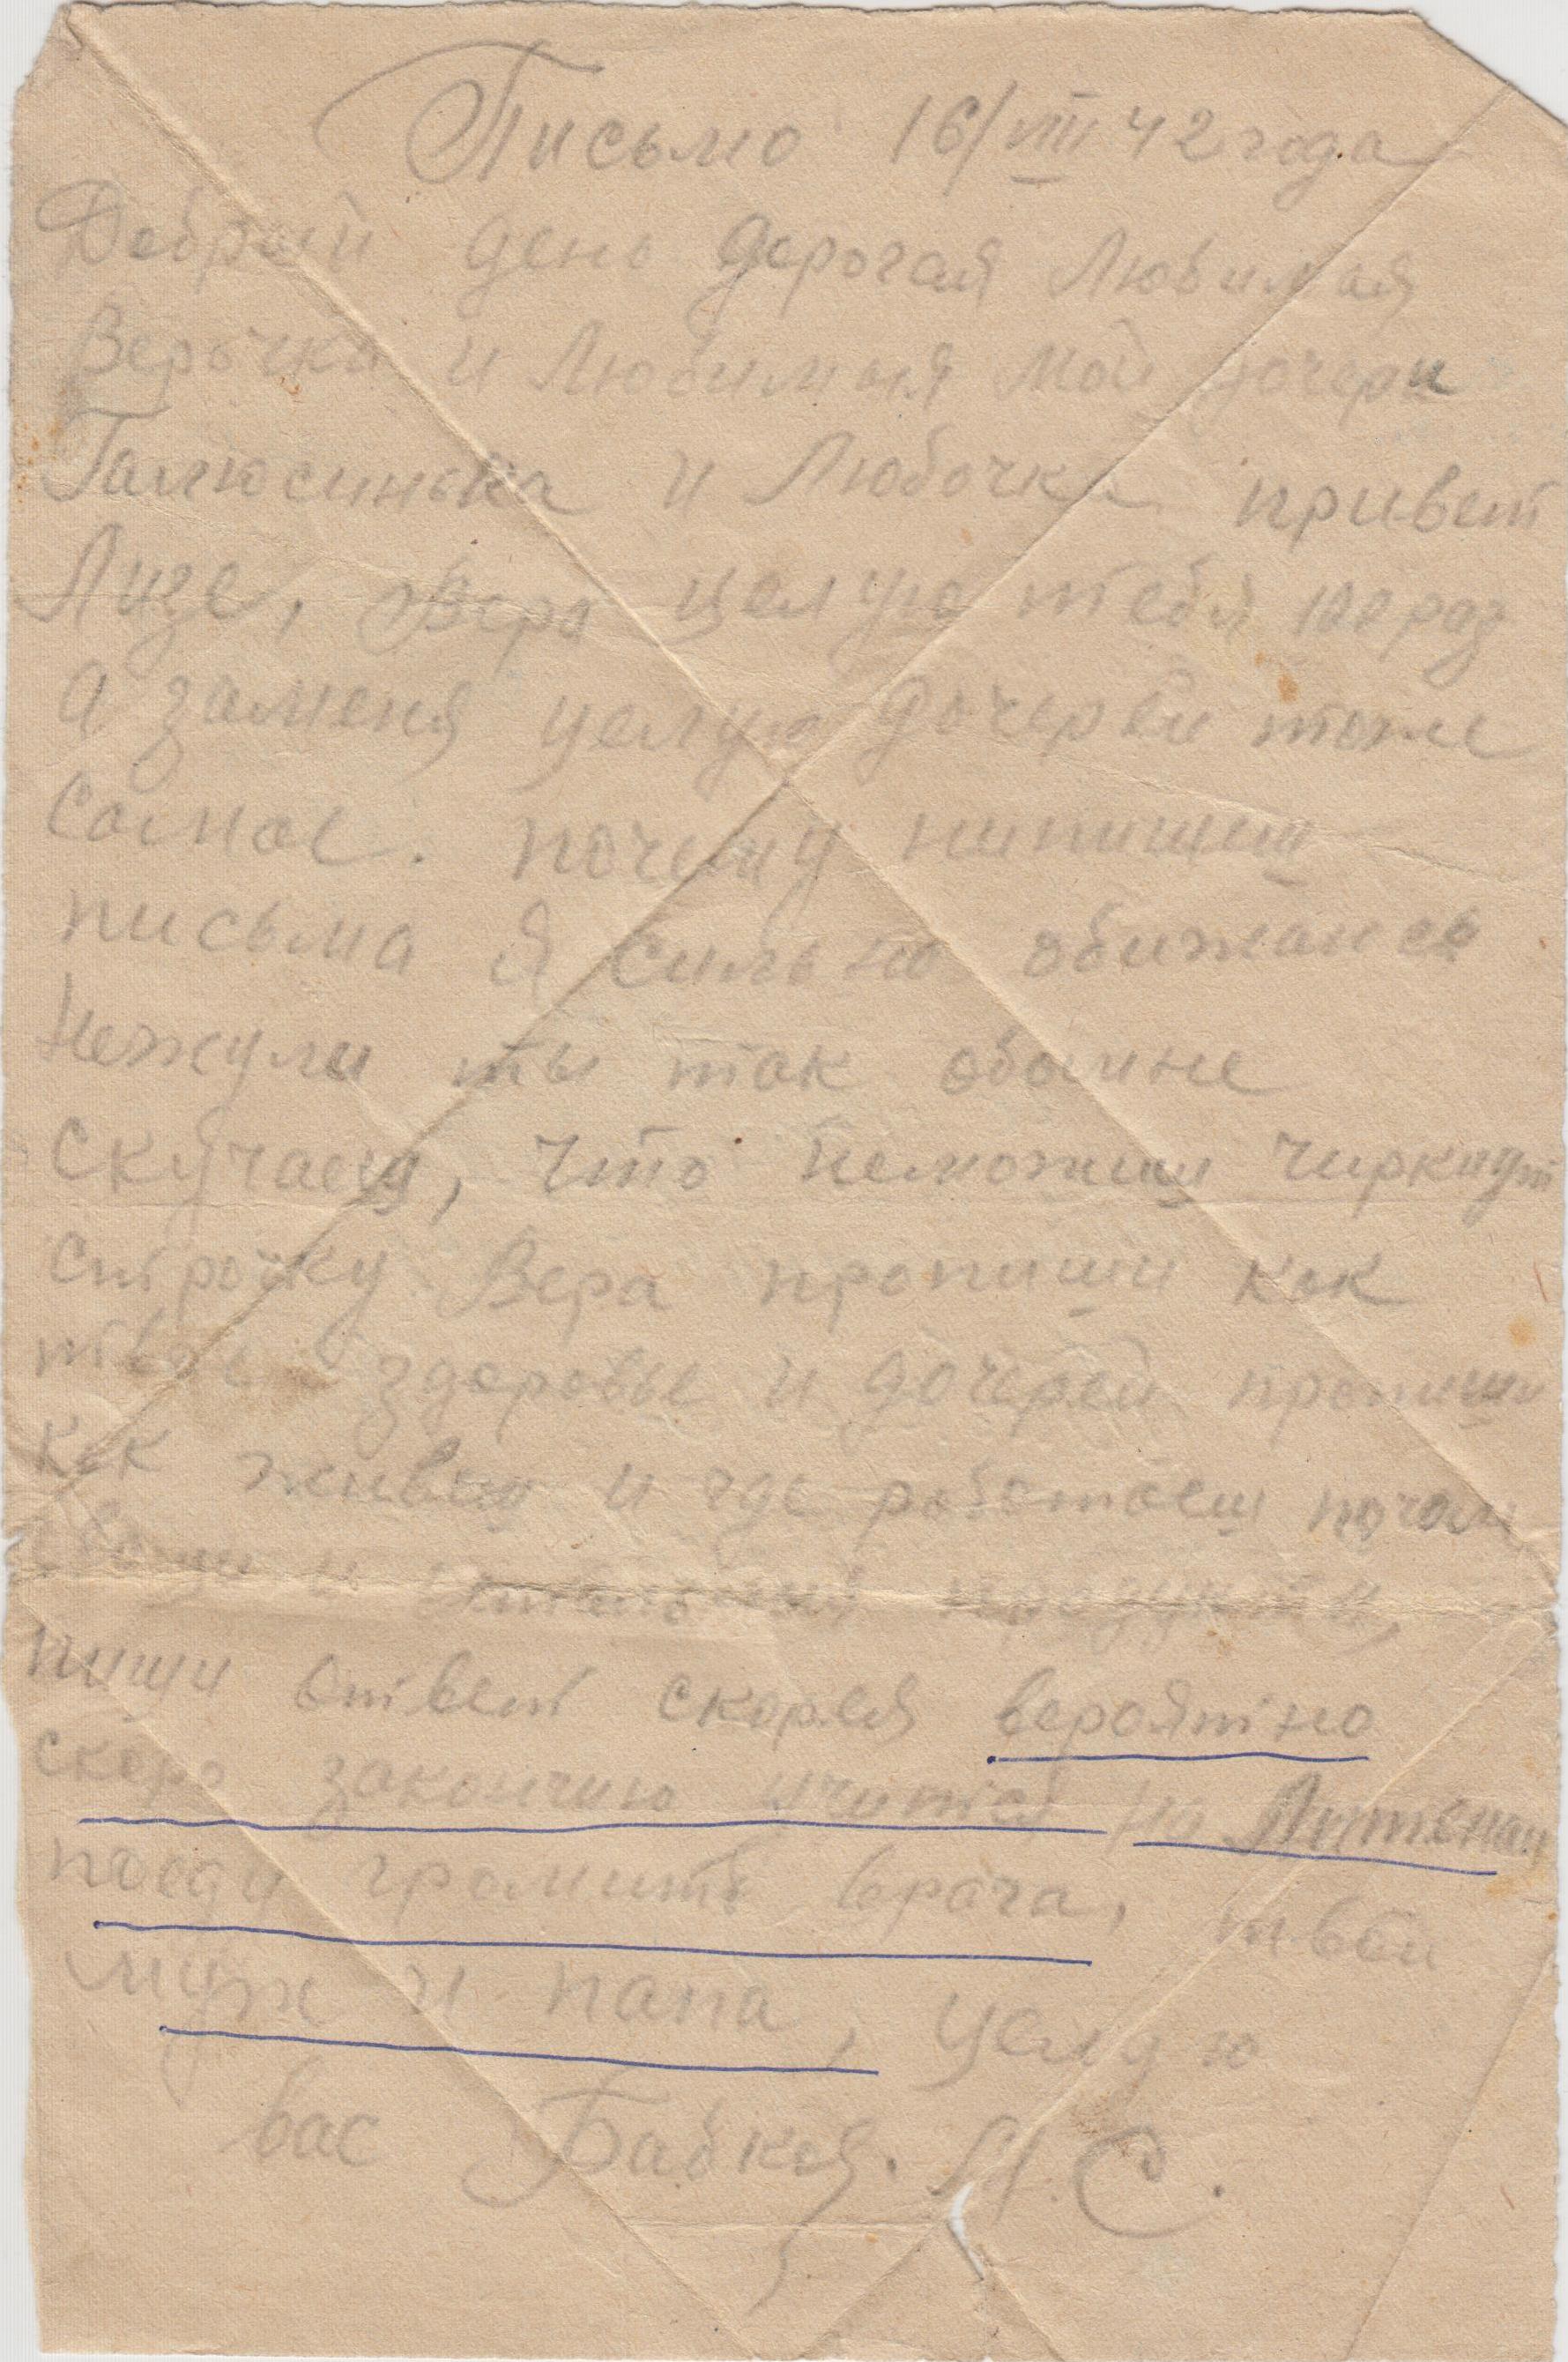 Письмо 16/VIII 42 года
Добрый день дорогая Любимая
Верочка и Любимыя мои дочери
Галюсинька и Любочка привет
Лизе, Вера целую тебя 100 раз
а заменя целуй дочерей тоже
самое. почему нипишеш
письма я сильно обижаюсь
Нежули ты так обомне
скучаеш, что неможиш чиркнут
строчку Вера пропиши как
твое здоровье и дочерей пропиши
как живеш и где работаеш почем
овощи и остальные продукты,
пиши ответ скорея вероятно
скоро закончию учится на Литенан
поеду громить врага, твой
муж и папа, целую
вас Бабков. М. С.